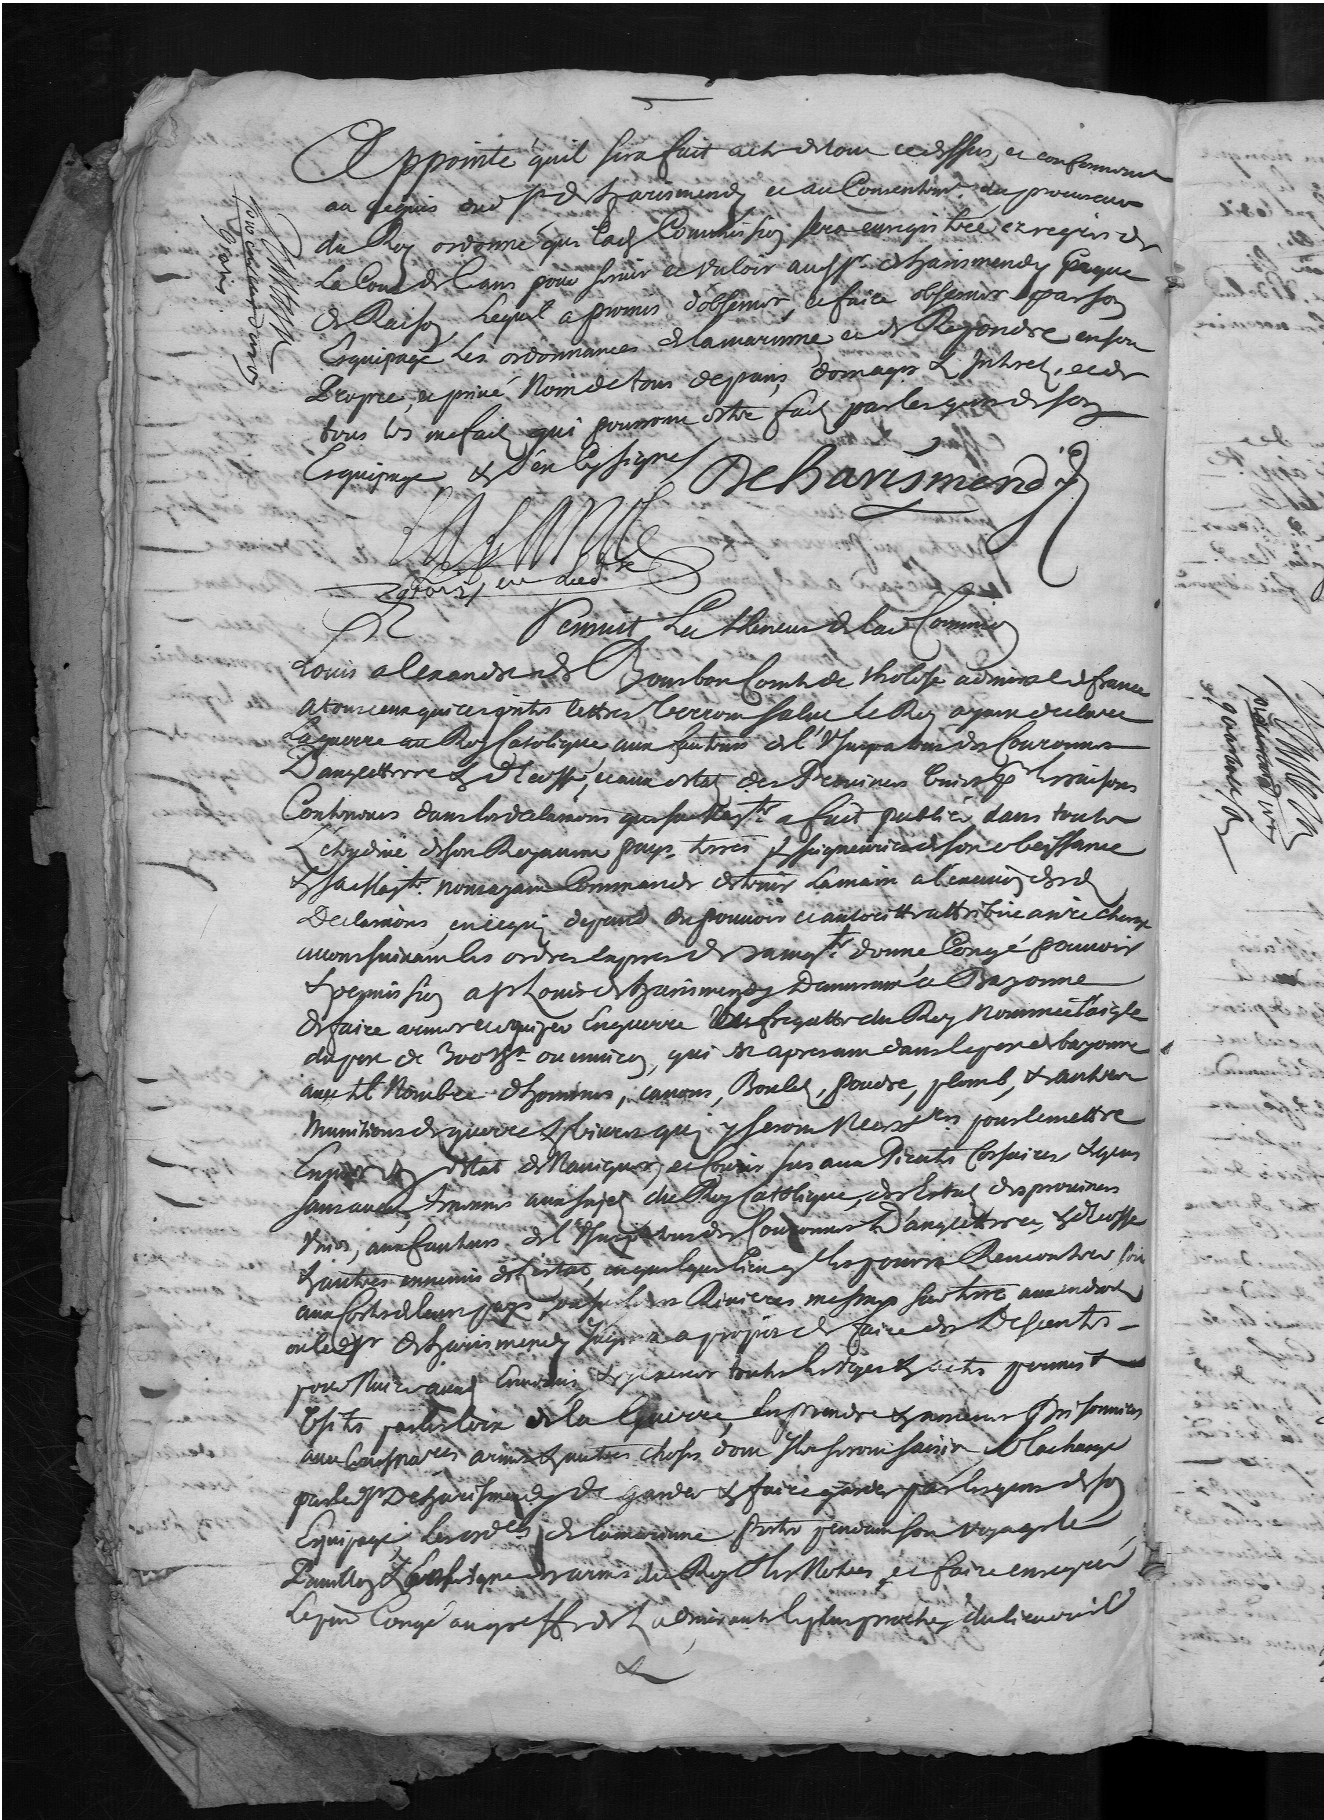 Appointé quil sera fait acte de tout ce dessus, et conformement
au requis dud sr de harismendy et au Consentemt du procureur
du Roy ordonné que lad Commission sera enregistrée ez registre de
La Cour de Ceans pour servir et valoir aud sr de harismendy Ce que
de Raison, Lequel a promis d'observer, et faire observer par son
Esquipage Les ordonnances de la marinne, et de Repondre en son
Propre, et privé Nom de tous depans, domages & Interets, et de
tous les mefaits qui pourront estre faits par les gens de son
Esquipage & d'en Cy signé
De harismendy
Sensuit La Teneur de lad Commission
Louis alexandre de Bourbon Comte de tholose admiral de france
a tous ceux qui ces pntes lettres verront salut Le Roy ayant declaré
La guerre au Roy Catolique, aux fauteurs de l'Usurpateur des Couronnes
D'angletterre & d'Ecosse, et aux estats des Provinces Unies pr les raisons
Contenues dans les declarations que sa Majté a fait publié dans toute
L'etendue de son Royaume pays, terres & seigneuries de son obeissance
& sa Majté nous ayant Commandé de tenir la main a l'execution desd
Declarations, en ce qui depend du pouvoir et autoritte attribuée a nre charge
avons suivant les ordres Exprès de sa majté donné Congé pouvoir
& permission a sr Louis de harismendy Demeurant a Bayonne
de faire armer et equiper En guerre La fregatte du Roy Nommée L'aigle
du port de 300 tx ou environ, qui est apresent dans le port de bayonne
avec tel Nombre d'hommes, canons, Boulets, poudre, plomb, & autres
Munitions de guerre & vivres qui y seront Necessres pour le mettre
En estat de Naviguer, et Courir sus aux Pirates Corsaires & gens
sans aveu, & mesme aux sujets du Roy Catolique, des Estats des provinces
Unies, aux fauteurs de l'Usurpateur des Couronnes D'angletterre, & d'Ecosse
& autres ennemis de l'estat, en quelque lieu quil les pourra Rencontrer soit
aux Costes de leurs pays, dans leurs Rivieres mesme sur terre aux endroits
ou led sr de harismendy Jugera a propos de faire des Descentes
pour Nuire auxd Ennemis, & y exercer toutes les voyes & actes permis &
Usités par les loix de la Guerre, Les prendre & amener Prisonniers
avec leurs navires armes & autres choses dont Ils seront saisis A la charge
par led sr De harismendy de garder & faire garder par les gens de son
Equipage, Les ordces de la marinne Porter pendant son voyage le
Pavillon & Enseigne des armes du Roy & les Notres, et faire enregrer
Le pnt Congé au greffe de L admirauté le plus proche, du lieu ou il